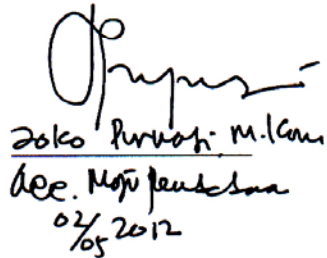 Joko Purwadi, M.Kom
Acc. Maju pendadaran
02/05 2012